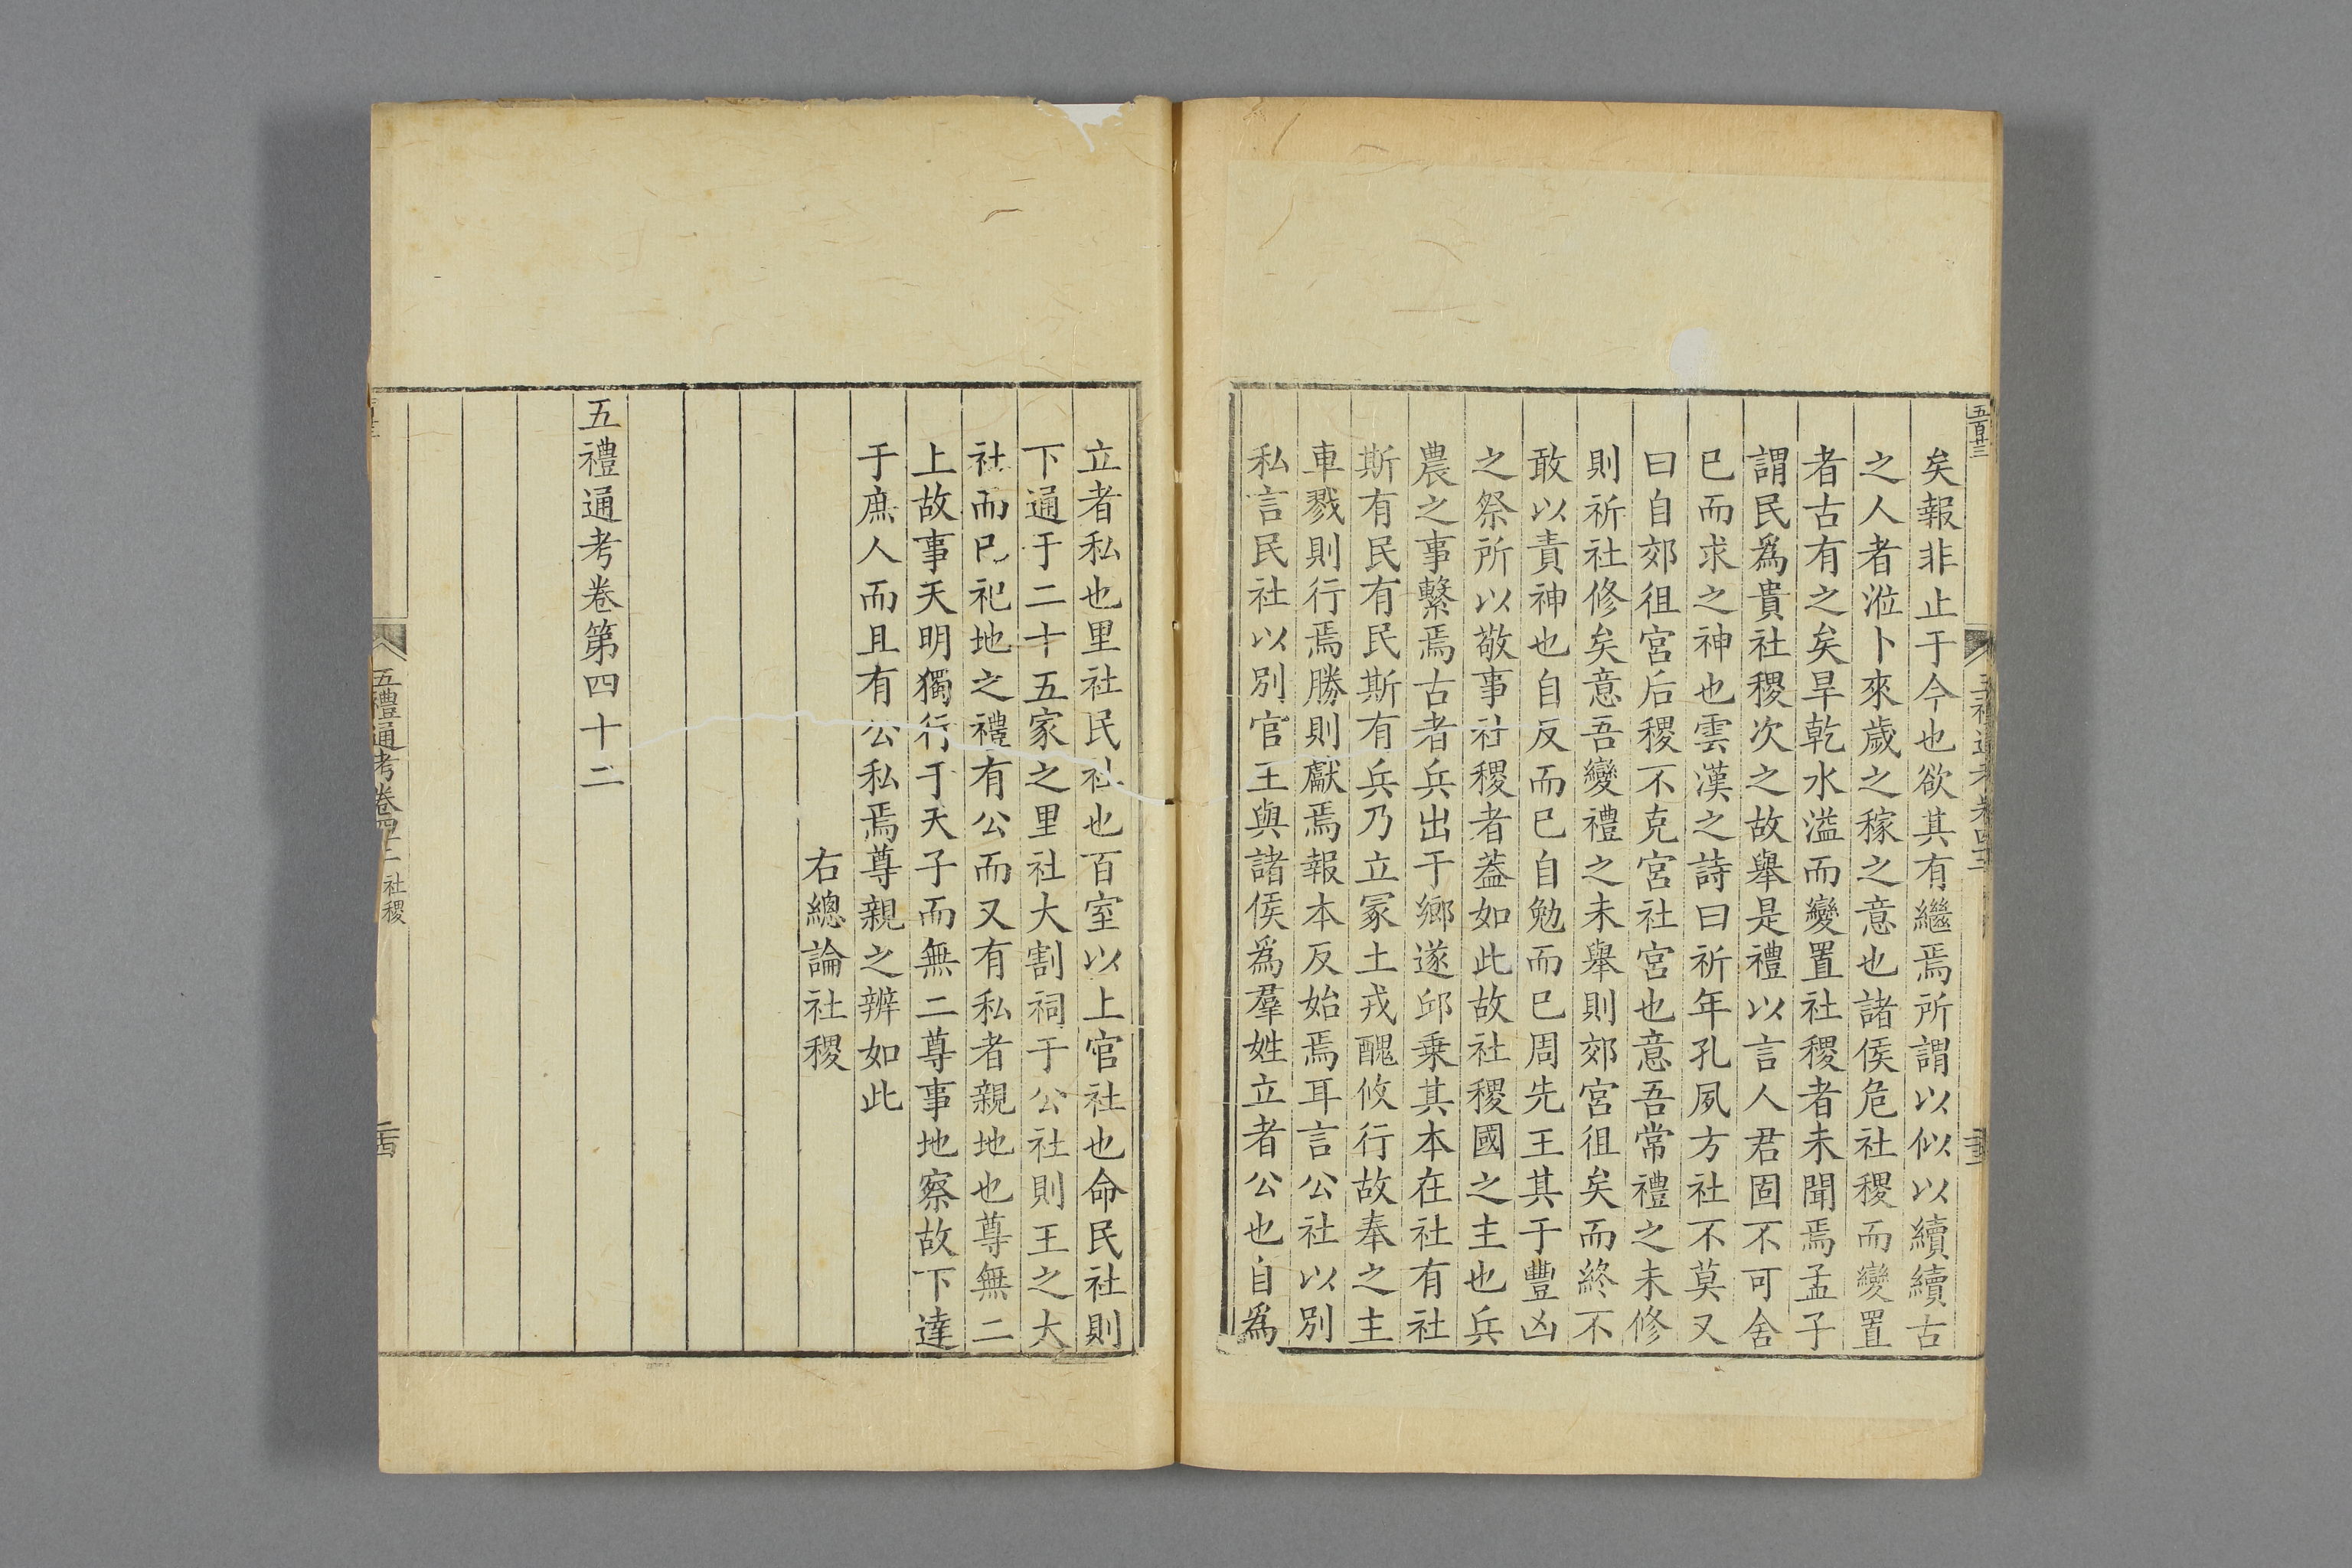 五百廿三
矣報非止于今也欲其有繼焉所謂以似以續續古
之人者涖卜來歲之稼之意也諸侯危社稷而變置
者古有之矣旱乾水溢而變置社稷者未聞焉孟子
謂民爲貴社稷次之故舉是禮以言人君固不可舍
已而求之神也雲漢之詩曰祈年孔夙方社不莫又
曰自郊徂宮后稷不克宮社宮也意吾常禮之未修
則祈社修矣意吾變禮之未舉則郊宮徂矣而終不
敢以責神也自反而已自勉而已周先王其于豐凶
之祭所以敬事社稷者蓋如此故社稷國之主也兵
農之事繫焉古者兵出于鄉遂邱乗其本在社有社
斯有民有民斯有兵乃立冢土戎醜攸行故奉之主
車戮則行焉勝則獻焉報本反始焉耳言公社以別
私言民社以別官王與諸侯爲羣姓立者公也自爲
立者私也里社民社也百室以上官社也命民社則
下通于二十五家之里社大割祠于公社則王之大
社而已祀地之禮有公而又有私者親地也尊無二
上故事天明獨行于天子而無二尊事地察故下達
于庶人而且有公私焉尊親之辨如此
右總論社稷
五禮通考卷第四十二
五禮通考卷四十二 社稷